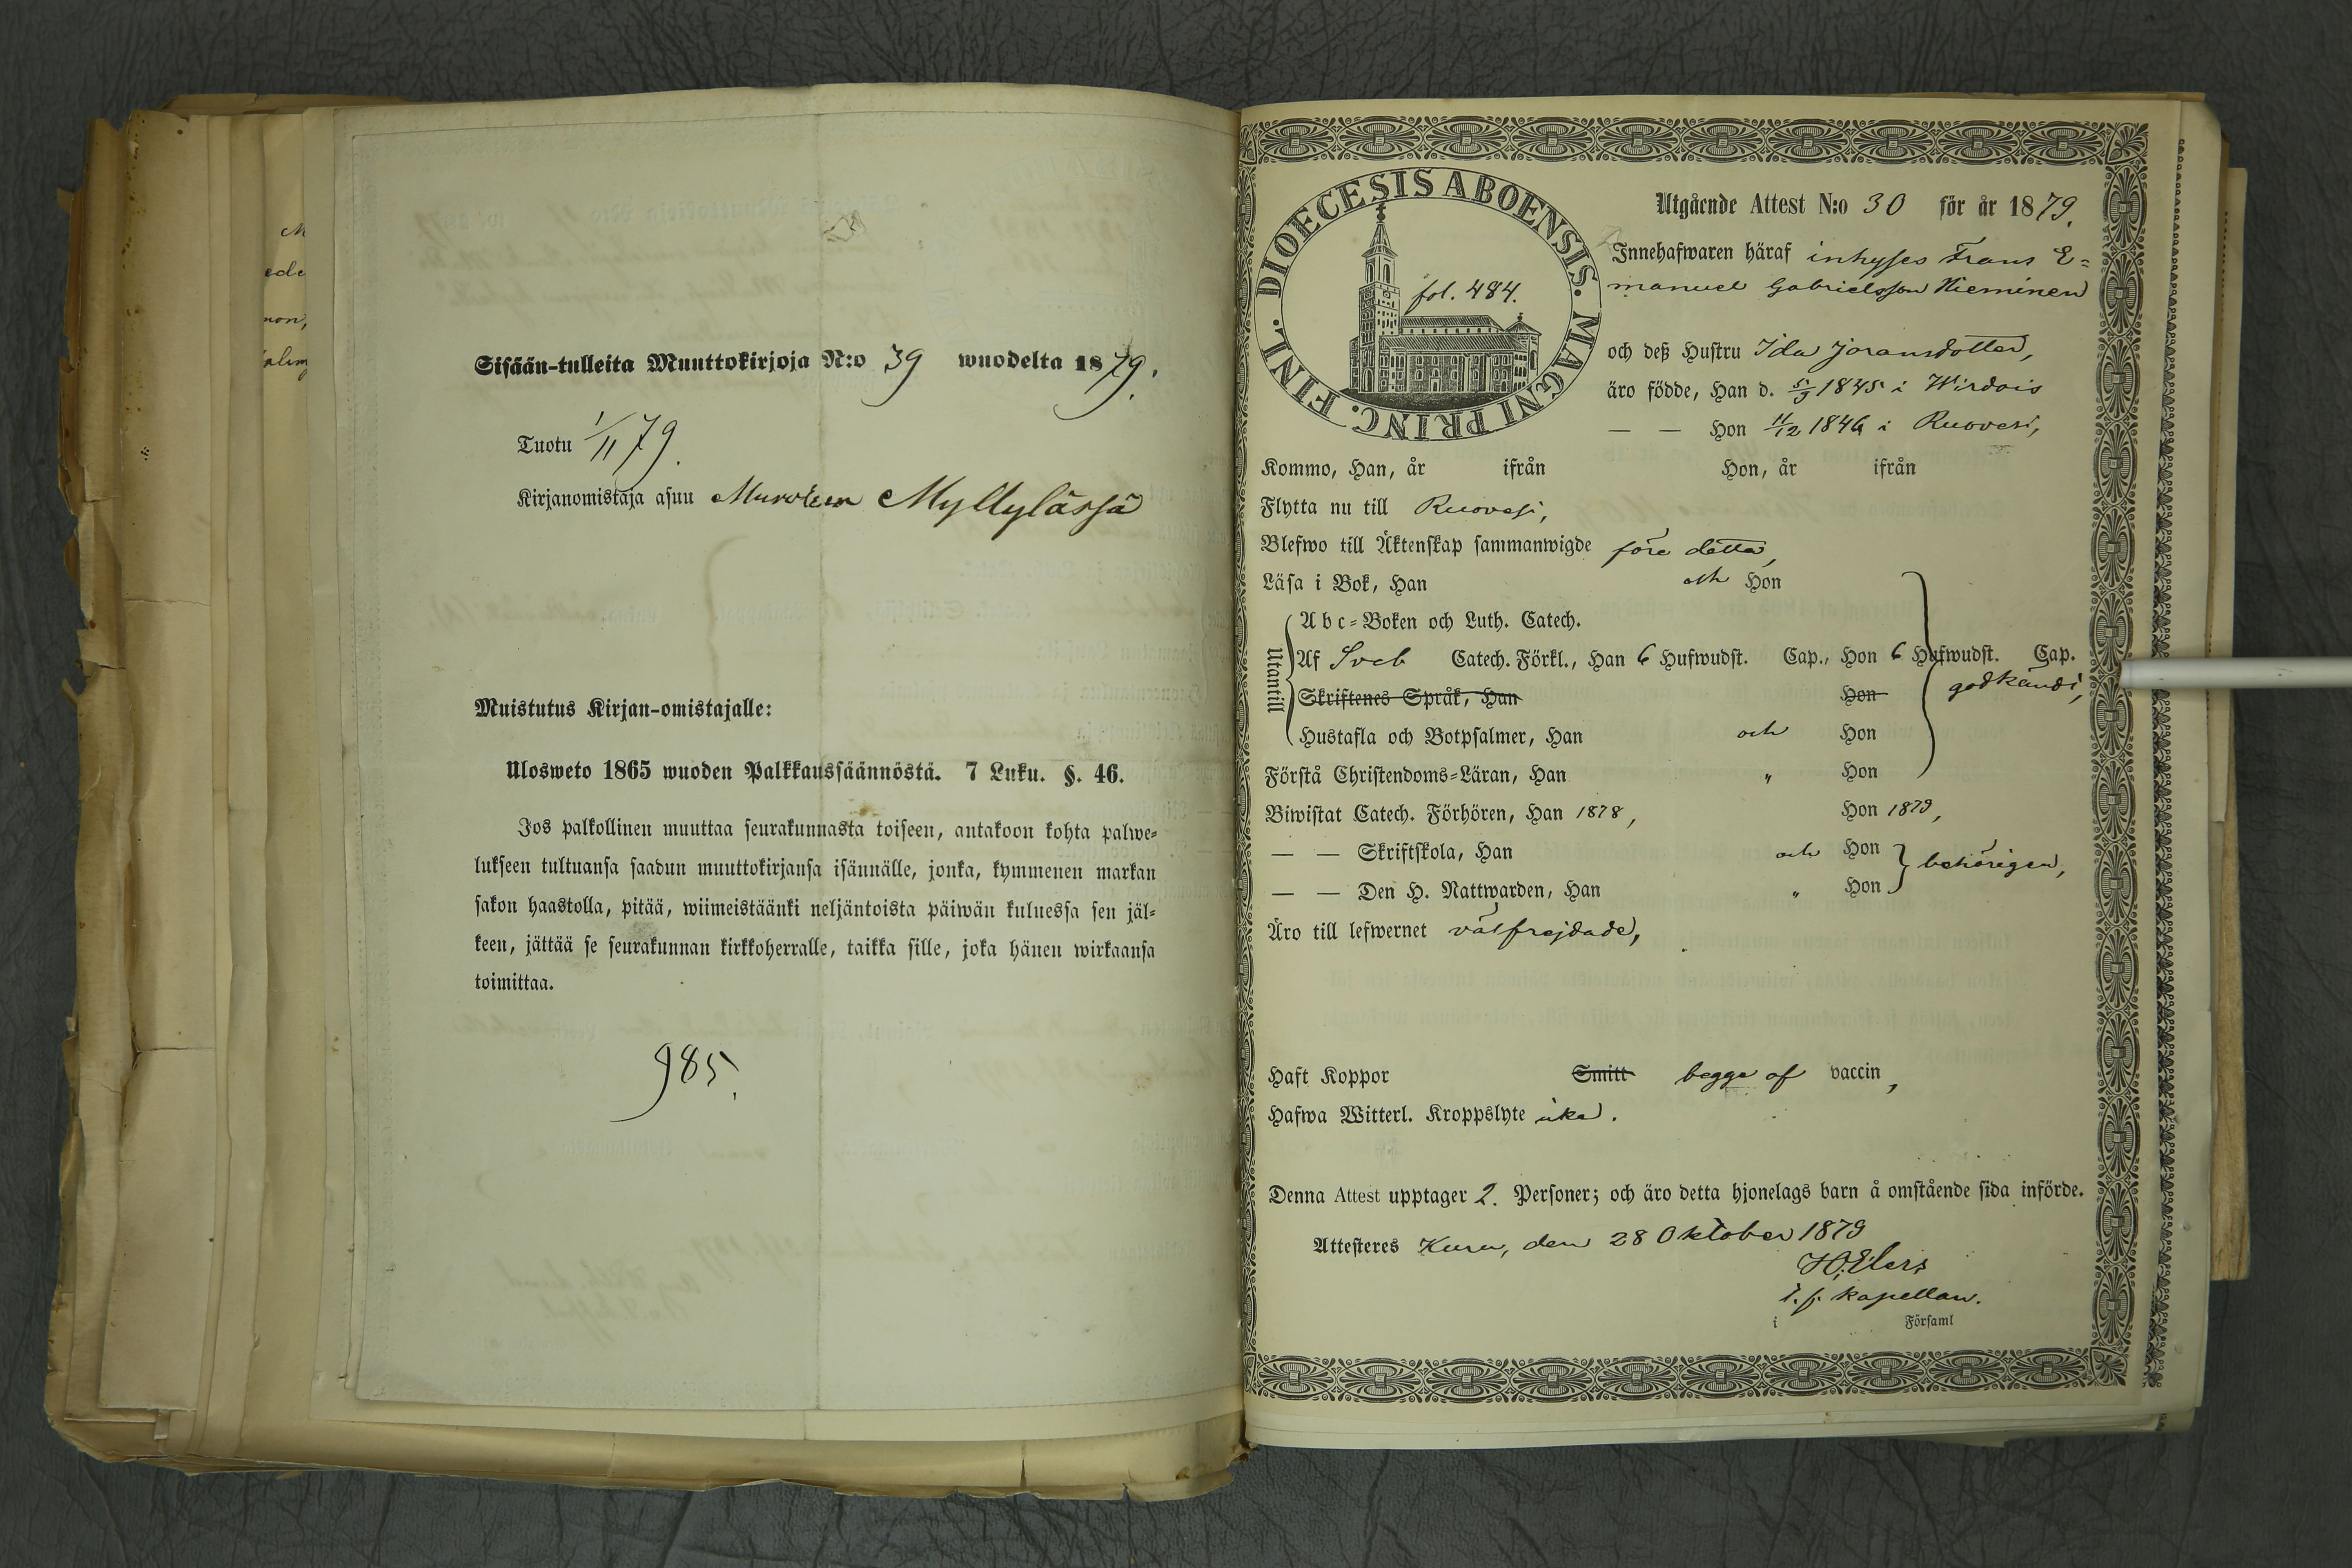 Sisään-tulleita Muuttokirjoja N:o 39 wuodelta 1879.
Tuotu 1/11 79.
Kirjanomistaja asuu Muroleen Myllylässä
Muistutus Kirjan-omistajalle:
Ulosweto 1865 wuoden Palkkaussäännöstä. 7 Luku. §. 46.
Jos palkollinen muuttaa seurakunnasta toiseen, antakoon kohta palwe=
lukseen tultuansa saadun muuttokirjansa isännälle, jonka, kymmenen markan
sakon haastolla, pitää, wiimeistäänki neljäntoista päiwän kuluessa sen jäl=
keen, jättää se seurakunnan kirkkoherralle, taikka sille, joka hänen wirkaansa
toimittaa.
985.
DIOECESIS ABOENSIS. MAGNI PRINC. FINL.
fol. 484.
Utgående Attest N:o 30 för år 1879.
Innehafwaren häraf inhyses Frans E=
manuel Gabrielsson Nieminen
och deß Hustru Ida Joransdotter,
äro födde, Han d. 5/3 1845 i Wirdois
— — Hon 11/12 1846 i Ruovesi,
Kommo, Han, år ifrån Hon, år ifrån
Flytta nu till Ruovesi,
Blefwo till Äktenskap sammanwigde före detta,
Läsa i Bok, Han och Hon
Utantill
Abc=Boken och Luth. Catech.
Af Sveb Catech. Förkl., Han 6 Hufwudst. Cap., Hon 6 Hufwudst. Cap.
godkändt,
Skriftenes Språk, Han Hon
Hustafla och Botpsalmer, Han och Hon
Förstå Christendoms=Läran, Han " Hon
Biwistat Catech. Förhören, Han 1878, Hon 1879,
— — Skriftskola, Han och Hon
behörigen,
— — Den H. Nattwarden, Han " Hon
Äro till lefwernet välfrejdade,
Haft Koppor Smitt begge af vaccin,
Hafwa Witterl. Kroppslyte icke.
Denna Attest upptager 2. Personer; och äro detta hjonelags barn å omstående sida införde.
Attesteres Kuru, den 28 Oktober 1879
t. f. kapellan.
i Församl